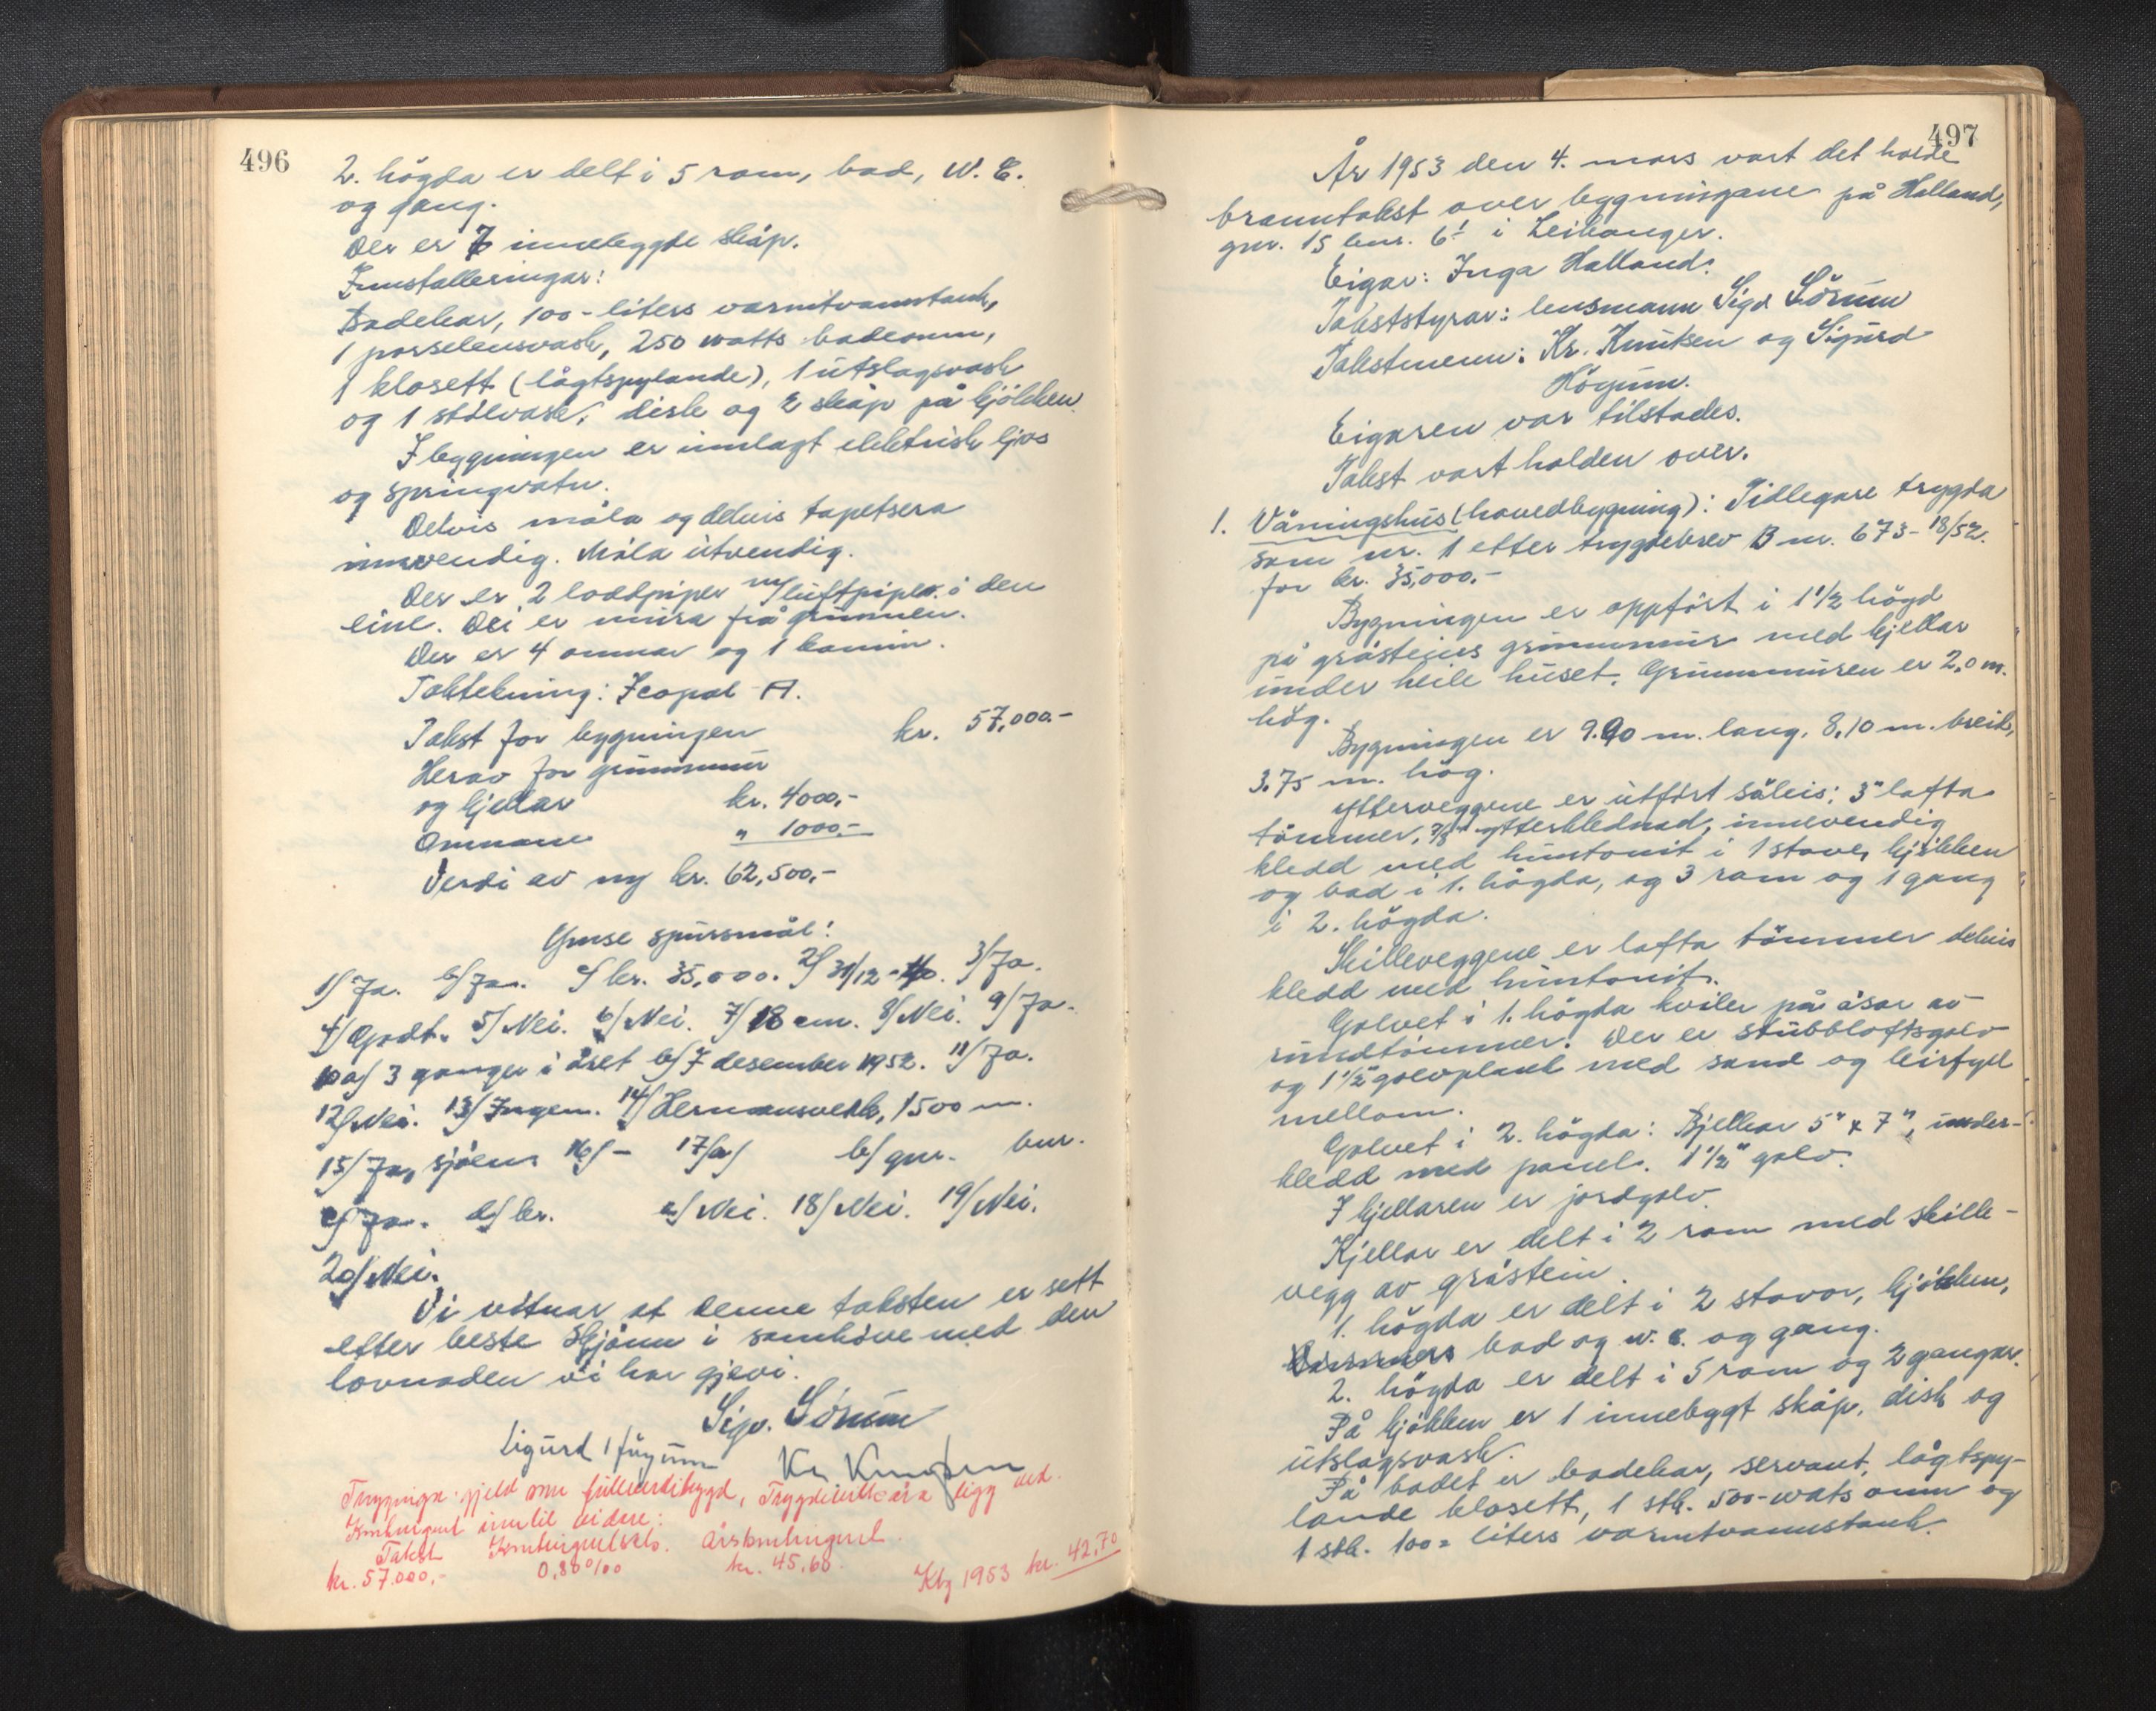 496
2. högda er delt i 5 rom, bad, W.C.
og gang.
Der er 7 innebygde skåp.
Innstalleringar:
Badekar, 100-liters varmtvannstank,
1 porselensvask, 250 watts badeomn,
1 klosett (lågtspylande), 1 utslagsvask
og 1 stålvask, disk og 2 skåp på kjökken.
I bygningen er innlagt elektrisk ljos
og springvatn.
Delvis måla og delvis tapetsera
innvendig. Måla utvendig.
Der er 2 loddpiper m/luftpiper i den
eine. Dei er mura frå grunnen.
Der er 4 omnar og 1 kamin.
Taktekning: Icopal A.
Takst for bygningen kr. 57,000.-
Herav for grunnmur
og kjellar kr. 4000,-
Omnane " 1000,-
Verdi av ny kr. 62,500,-
Ymse spursmål:
1/ Ja. b/ Ja. c/ kr. 35,000. 2/ 31/12-40. 3/ Ja.
4/ Godt. 5/ Nei. 6/ Nei. 7/ 18 cm. 8/ Nei. 9/ Ja.
10 a/ 3 ganger i året b/ I desember 1952. 11/ Ja.
12/ Nei. 13/ Ingen. 14/ Hermansverk, 1500 m.
15/ Ja, sjöen 16/ - 17/a/ b/ gnr. bnr.
c/ Ja. d/ kr. e/ Nei. 18/ Nei. 19/ Nei.
20/ Nei.
Vi vitnar at denne taksten er sett
etter beste skjönn i samhöve med den
lovnaden vi har gjevi.
Sigv. Sörum
Sigurd Högum Kr. Knutsen
Trygginga gjeld som fullverditrygd, ligg ved.
inntil vidare:
Takst Årskontingent
kr. 57.000,- 0,80 o/oo kr. 45,60. Ktg 1953 kr. 42,70
497
År 1953 den 4. mars vart det halde
branntakst over bygningane på Halland,
gnr. 15 bnr. 6 i Leikanger.
Eigar: Inga Halland.
Takststyrar: lensmann Sigv. Sörum
Takstmenn: Kr. Knutsen og Sigurd
Högum.
Eigaren var tilstades.
Takst vart halden over.
1. Våningshus (hovedbygning): Tidlegare trygda
som nr. 1 etter trygdebrev B nr. 673-18/52.
for kr. 35,000.-
Bygningen er oppfört i 1 1/2 högd
på gråsteins grunnmur med kjellar
under heile huset. Grunnmuren er 2,0 m.
hög.
Bygningen er 9.90 m. lang, 8,10 m. breid,
3,75 m. hög.
Ytterveggene er utfört såleis: 3" lafta
tömmer, 7/8" ytterkledned, innvendig
kledd med huntonit i 1 stove, kjökken
og bad i 1. högda, og 3 rom og 1 gang
i 2. högda.
Skilleveggene er lafta tömmer delvis
kledd med huntonit.
Golvet i 1. högda kviler på åsar av
rundtömmer. Der er stubbloftsgolv
og 1 1/2" golvplank med sand og leirfyll
mellom.
Golvet i 2. högda: Bjelkar 5" x 7", under-
kledd med panel. 1 1/2" golv.
I kjellaren er jordgolv.
Kjellar er delt i 2 rom med skille-
vegg av gråstein.
1. högda er delt i 2 stovor, kjökken,
bad og w.c. og gang.
2. högda er delt i 5 rom og 2 gangar.
På kjökken er 1 innebygt skåp, disk og
utslagsvask.
På badet er badekar, servant, lågtspy-
lande klosett, 1 stk. 500-wats omn og
1 stk. 100-liters varmtvannstank.